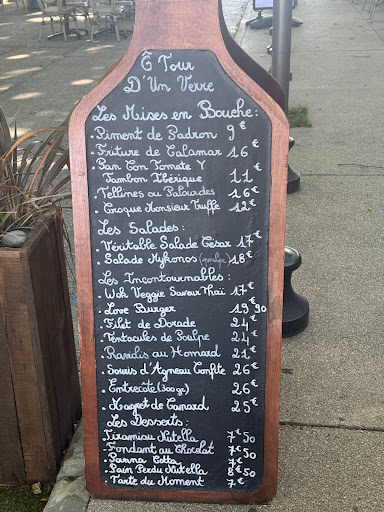 Ô Tour
D'Un Verre
Les Mises en Bouche :
• Piment de Padron 9€
• Friture de Calamar 16€
• Pan Con Tomate Y
Jambon Ibérique 11€
• Tellines ou Palourdes 16€
• Croque Monsieur Truffe 12€
Les Salades :
• Véritable Salade César 17€
• Salade Mykonos 18€
Les Incontournables :
• Wok Veggie Saveur Thaï 17€
• Love Burger 19€90
• Filet de Dorade 24€
• Tentacules de Poulpe 24€
• Raviolis au Homard 21€
• Souris d'Agneau Confite 26€
• Entrecôte (300gr) 26€
• Magret de Canard 25€
Les Desserts :
• Tiramisu Nutella 7€50
• Fondant au Chocolat 7€50
• Panna Cotta 7€
• Pain Perdu Nutella 8€50
• Tarte du Moment 7€